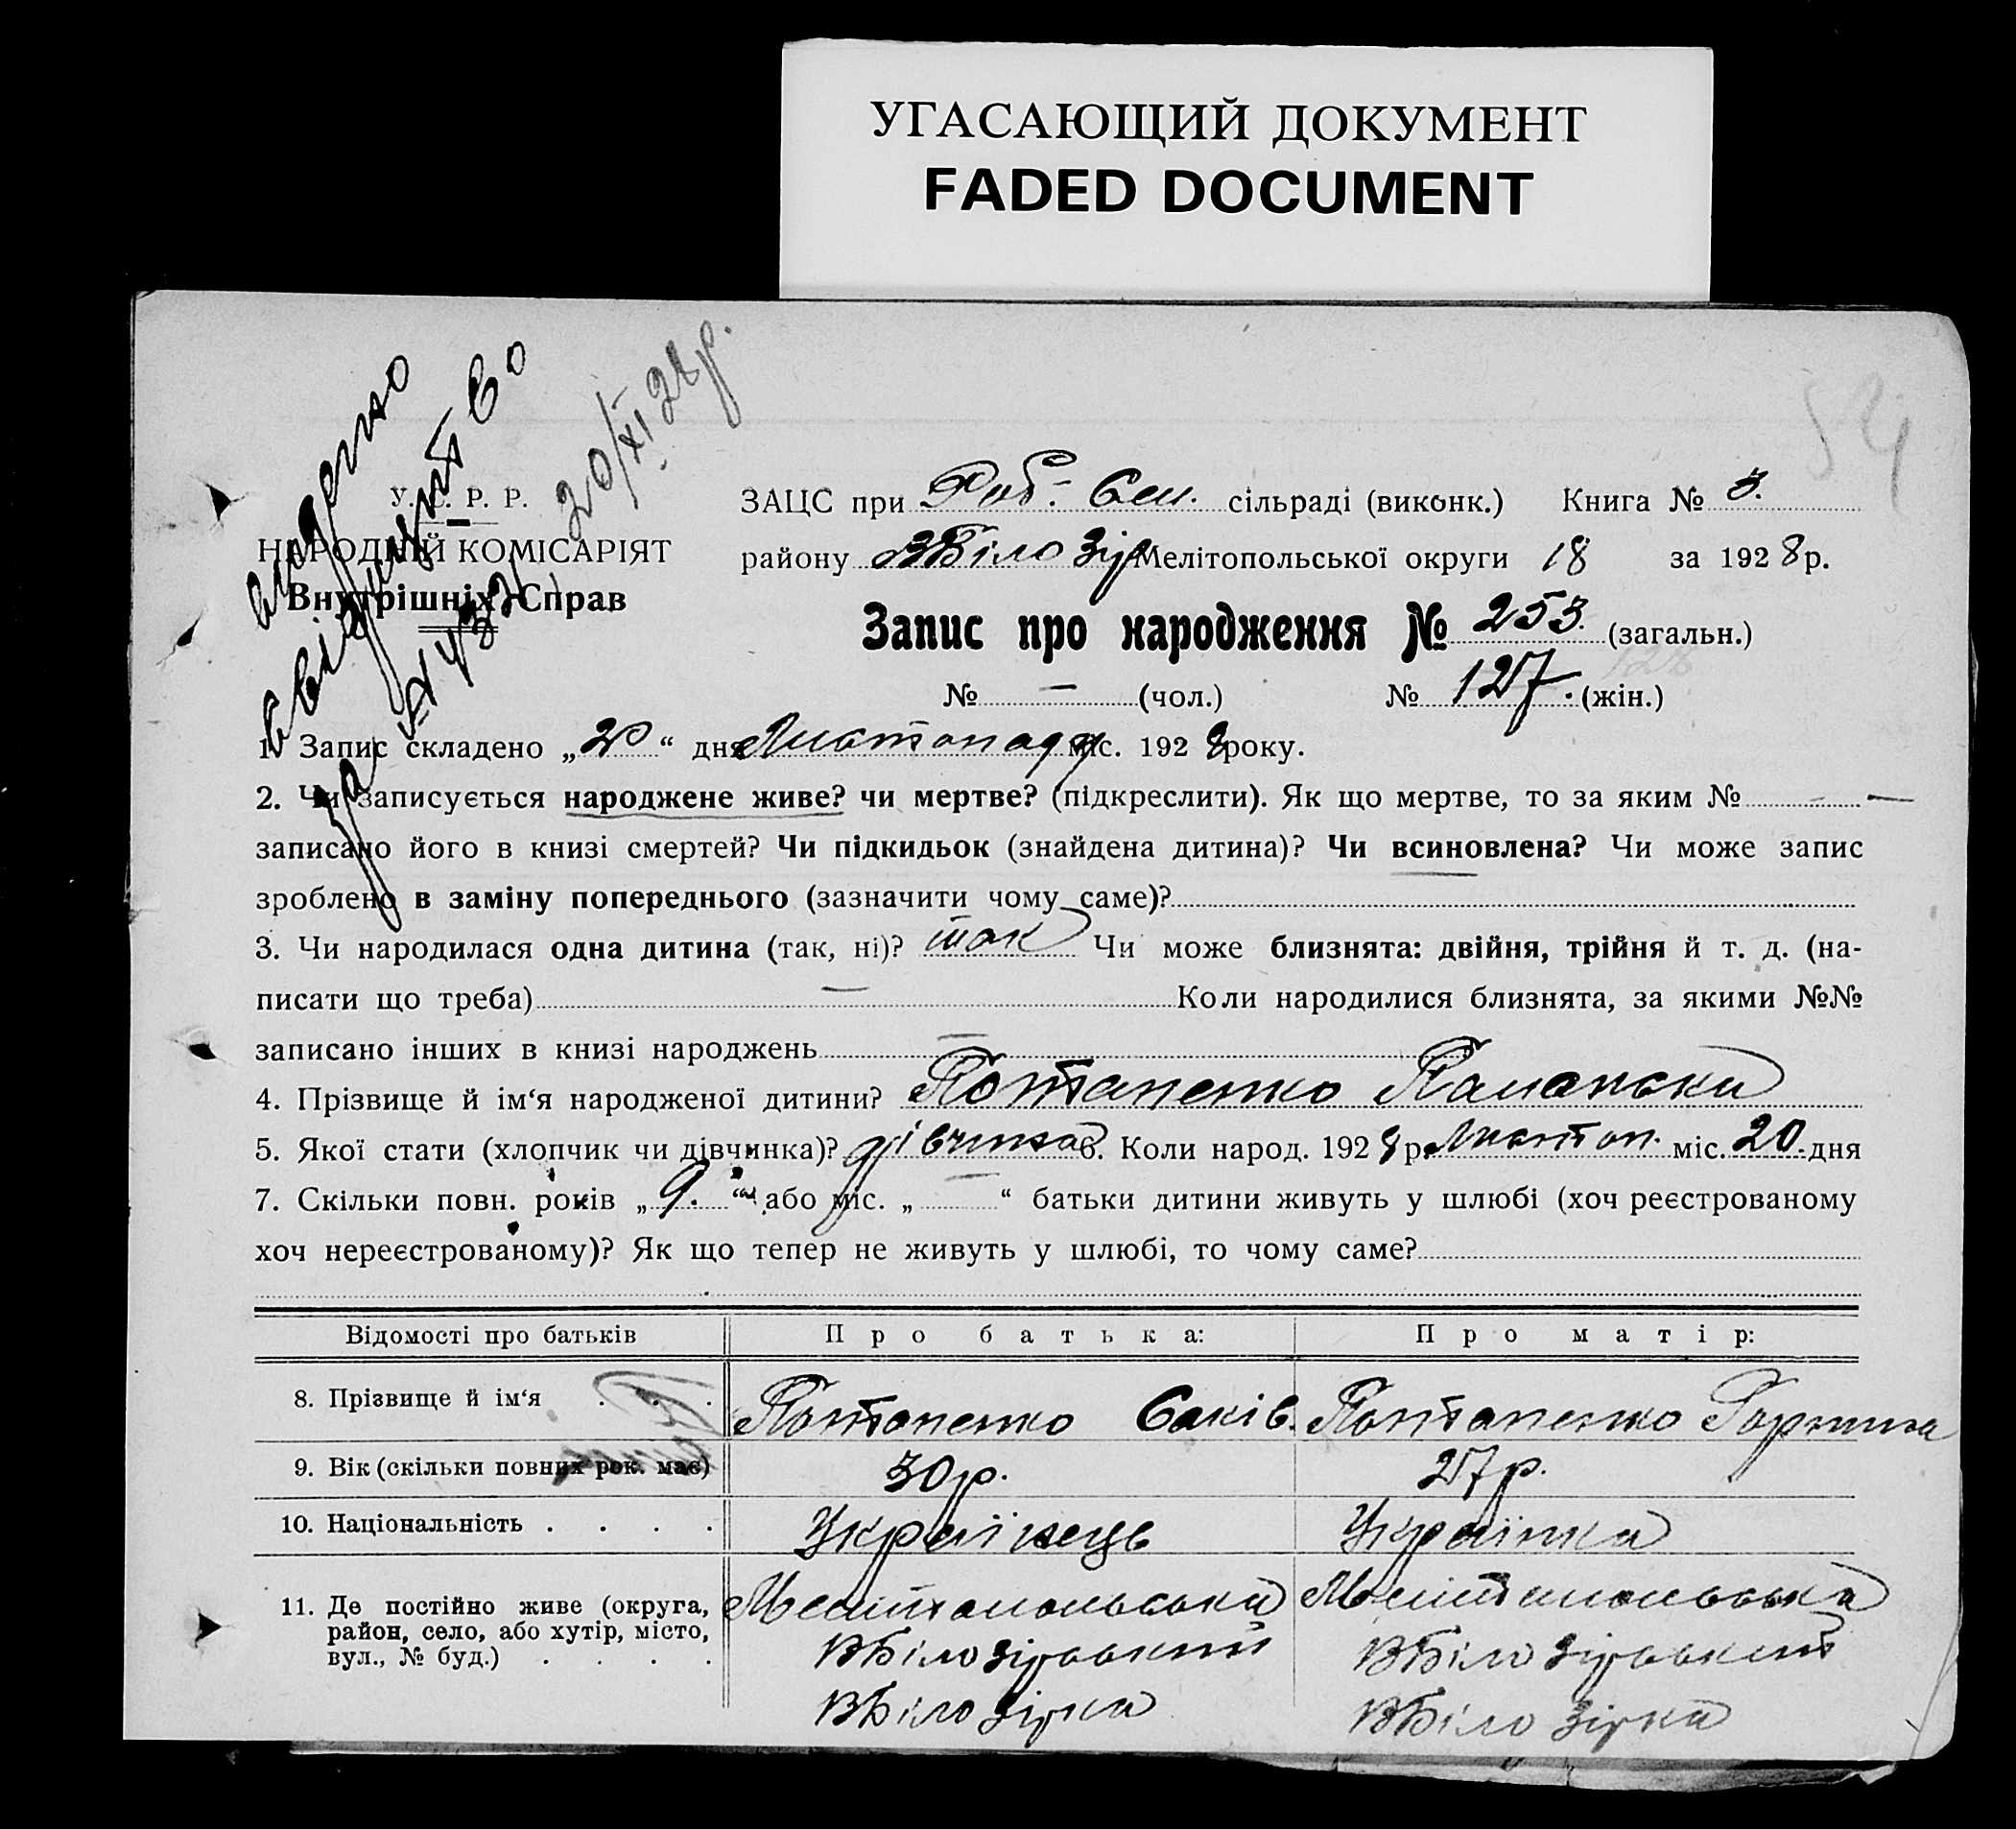 УГАСАЮЩИЙ ДОКУМЕНТ
FADED DOCUMENT
видано
свідоцтво
за № 432
20/XI 28р.
54
У. С. Р. Р.
НАРОДНІЙ КОМІСАРІЯТ
Внутрішніх Справ
ЗАЦС при Роб.- Сел. сільраді (виконк.) Книга № 3.
району ВБілозір Мелітопольської округи 18 за 1928 р.
Запис про народження № 253. (загальн.)
№ — (чол.) № 127. (жін.)
1. Запис складено „20“ дня Листопаду міс. 1928 року.
2. Чи записується народжене живе? чи мертве? (підкреслити). Як що мертве, то за яким № —
записано його в книзі смертей? Чи підкидьок (знайдена дитина)? Чи всиновлена? Чи може запис
зроблено в заміну попереднього (зазначити чому саме)?
3. Чи народилася одна дитина (так, ні)? так Чи може близнята: двійня, трійня й т. д. (на-
писати що треба) — Коли народилися близнята, за якими №№
записано інших в книзі народжень —
4. Прізвище й ім‘я народженої дитини? Потапенко
5. Якої стати (хлопчик чи дівчинка)? дівчина 6. Коли народ. 1928 р. Листоп. міс. 20. дня
7. Скільки повн. років „9.“ або міс. „—“ батьки дитини живуть у шлюбі (хоч реєстрованому
хоч нереєстрованому)? Як що тепер не живуть у шлюбі, то чому саме?
Відомості про батьків Про батька: Про матір:
8. Прізвище й ім‘я . . . Потапенко Потапенко Горпина
9. Вік (скільки повних рок. має) 30р. 27р.
10. Національність . . . . Українець Українка
11. Де постійно живе (округа,
район, село, або хутір, місто,
вул., № буд.) . . . .
Мелітопольська Мелітопольська
ВБілозірський ВБілозірський
ВБілозірка ВБілозірка